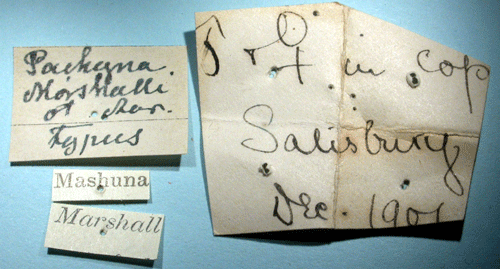 Pachyna
Marshalli
Typus
Mashuna
Marshall
in cop
Salisbury
Dec. 1901